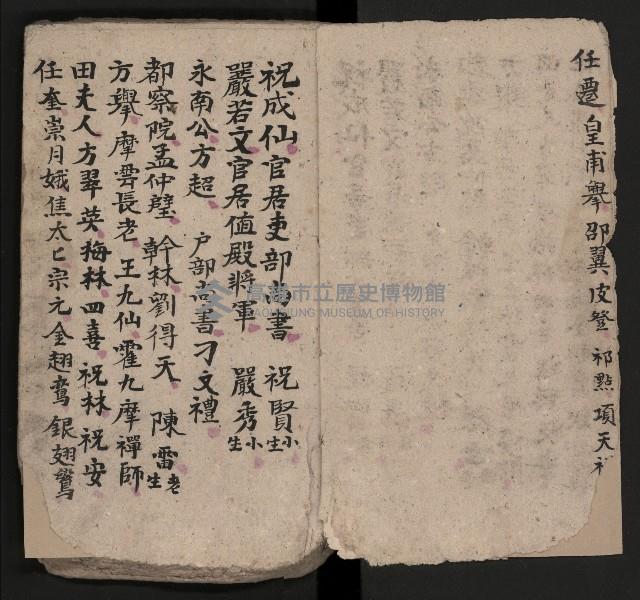 任遷 皇甫舉 邵翼 皮登 祁點 項天
祝成仙官居吏部尚書 祝賢小生
嚴若文官居值殿將軍 嚴秀小生
永南公方超 户部尚書刁文禮
都察院孟仲璧 翰林劉得天 陳雷老生
方舉 摩雲長老 王九仙 霍九摩禪師
田夫人 方翠英 梅林 四喜 祝林 祝安
任奎 崇月娥 焦大 宗元 金翅鴦 銀翅鴦
高雄市立歷史博物館
KAOHSIUNG MUSEUM OF HISTORY